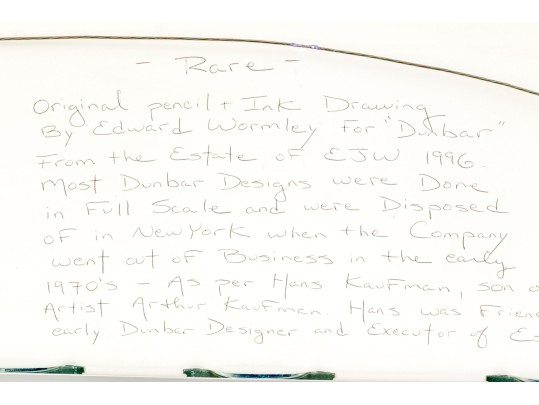 - Rare -
Original pencil + Ink Drawing
By Edward Wormley For "Dunbar"
From the Estate of EJW 1996.
Most Dunbar Designs were Done
in Full Scale and were Disposed
of in New York when the Company
went out of Business in the early
1970's - As per Hans Kaufman, son
Artist Arthur Kaufman. Hans was
early Dunbar Designer and Executor of